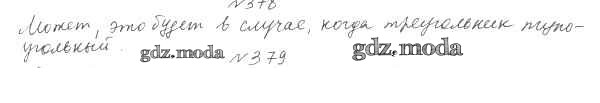 №378
Может, это будет в случае, когда треугольник тупо-
угольный.
gdz.moda №379 gdz.moda